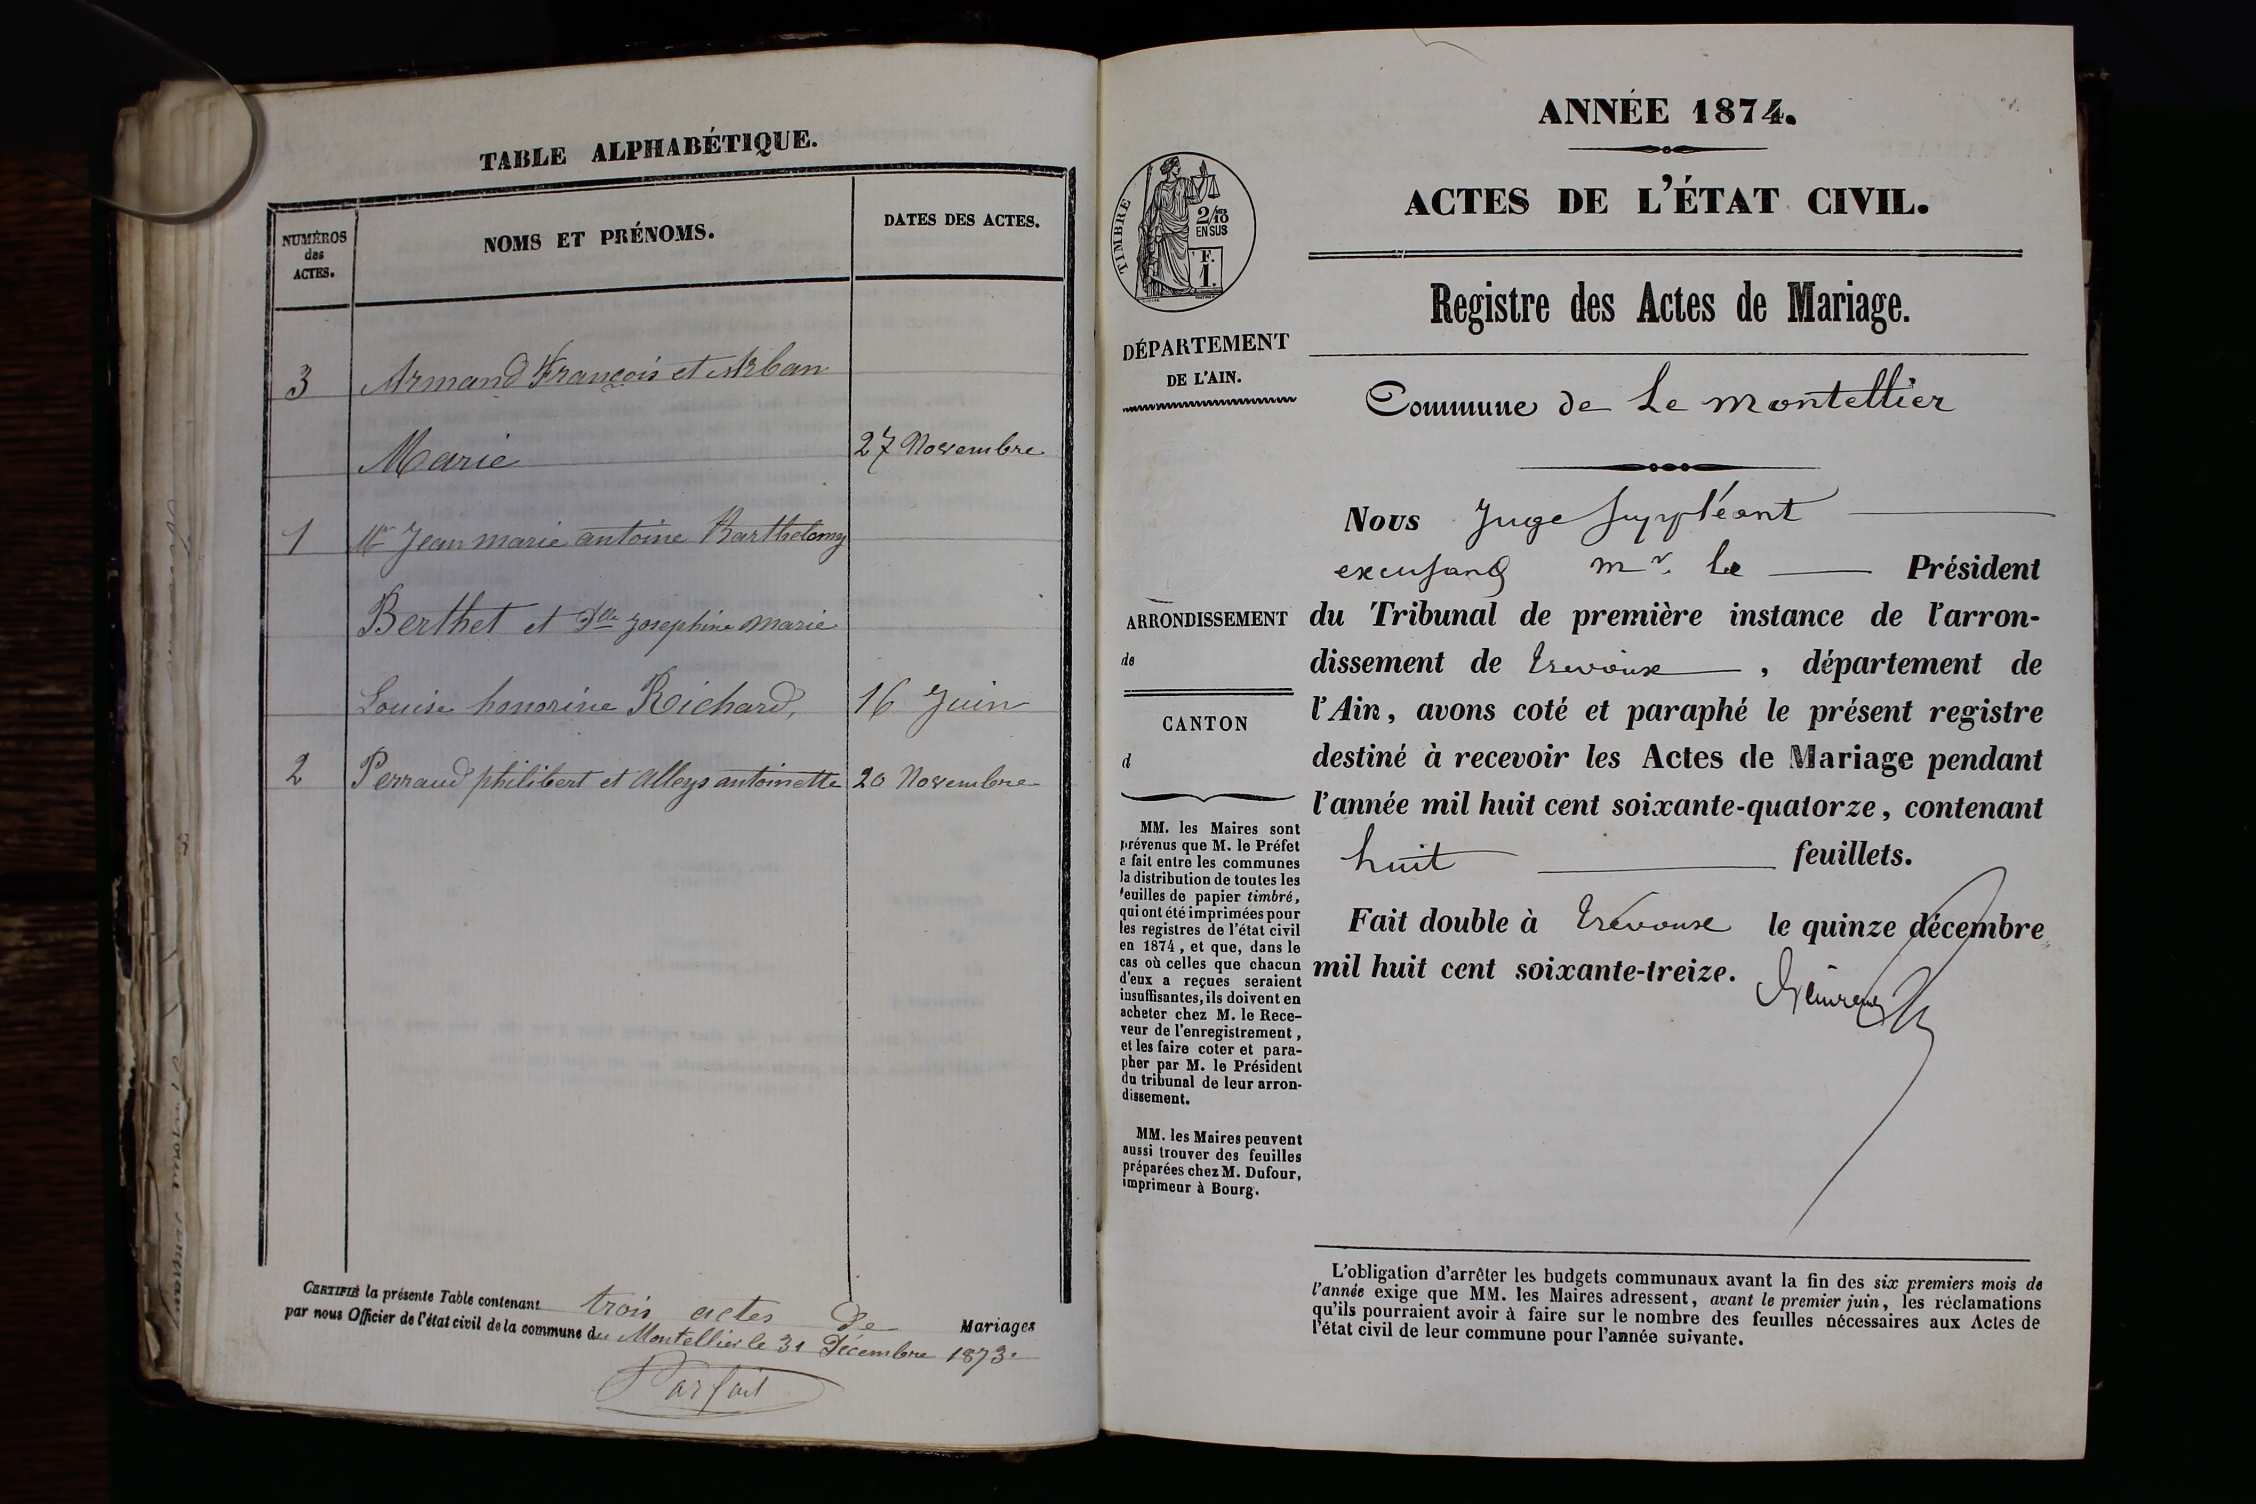 TABLE ALPHABÉTIQUE.
NUMÉROS
des
ACTES.
NOMS ET PRÉNOMS.
DATES DES ACTES.
3 Armand François et Arban
Marie 27 Novembre
1 Mr Jean marie antoine Barthelemy
Berthet et Dlle Josephine Marie
Louise honorine Richard, 16 Juin
2 Perraud philibert et Alleys antoinette 20 Novembre
CERTIFIÉ la présente Table contenant trois actes de Mariages
par nous Officier de l'état civil de la commune du Montellier le 31 Décembre 1873.
Parfait
ANNÉE 1874.
ACTES DE L'ÉTAT CIVIL.
Registre des Actes de Mariage.
TIMBRE
2/10
EN SUS
F.
1.
DÉPARTEMENT
DE L'AIN.
ARRONDISSEMENT
de
CANTON
d
MM. les Maires sont
prévenus que M. le Préfet
a fait entre les communes
la distribution de toutes les
feuilles de papier timbré,
qui ont été imprimées pour
les registres de l'état civil
en 1874, et que, dans le
cas où celles que chacun
d'eux a reçues seraient
insuffisantes, ils doivent en
acheter chez M. le Rece-
veur de l'enregistrement,
et les faire coter et para-
pher par M. le Président
du tribunal de leur arron-
dissement.
MM. les Maires peuvent
aussi trouver des feuilles
préparées chez M. Dufour,
imprimeur à Bourg.
Commune de Le Montellier
Nous Juge suppléant
excusant mr. le Président
du Tribunal de première instance de l'arron-
dissement de Trévoux, département de
l'Ain, avons coté et paraphé le présent registre
destiné à recevoir les Actes de Mariage pendant
l'année mil huit cent soixante-quatorze, contenant
huit feuillets.
Fait double à Trévoux le quinze décembre
mil huit cent soixante-treize.
L'obligation d'arrêter les budgets communaux avant la fin des six premiers mois de
l'année exige que MM. les Maires adressent, avant le premier juin, les réclamations
qu'ils pourraient avoir à faire sur le nombre des feuilles nécessaires aux Actes de
l'état civil de leur commune pour l'année suivante.